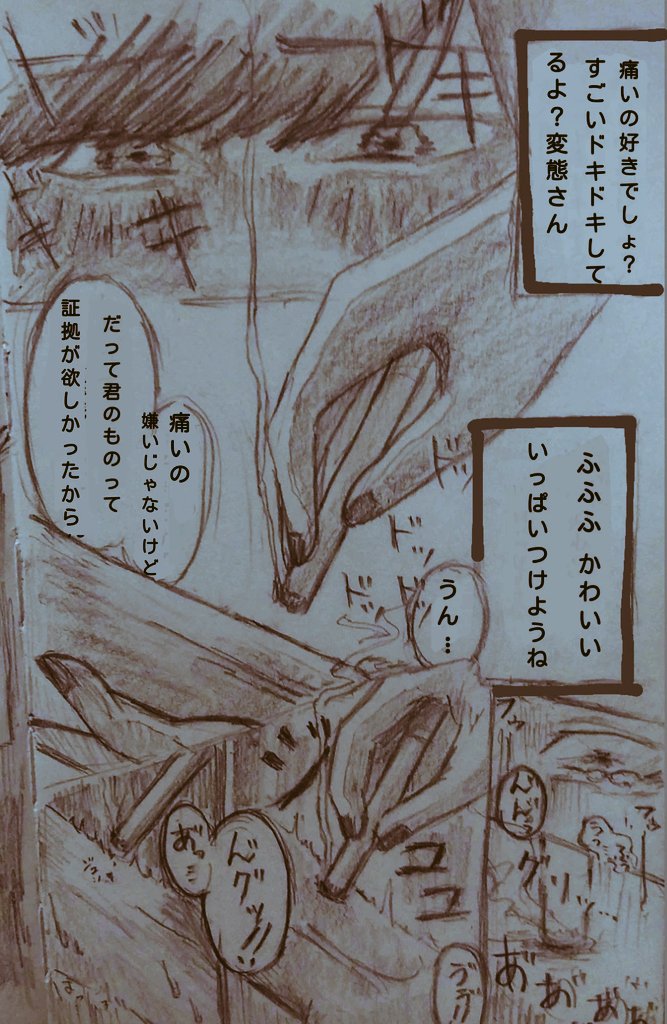 痛いの好きでしょ?
すごいドキドキして
るよ?変態さん
痛いの
嫌いじゃないけど
だって君のものって
証拠が欲しかったから…
ふふふ かわいい
いっぱいつけようね
うん…
ドッ
ドッ
ドッ
ドッ
ココ
んグッ!!
あっ
んんっ
グリッ…
あ゛
あ゛
あ゛